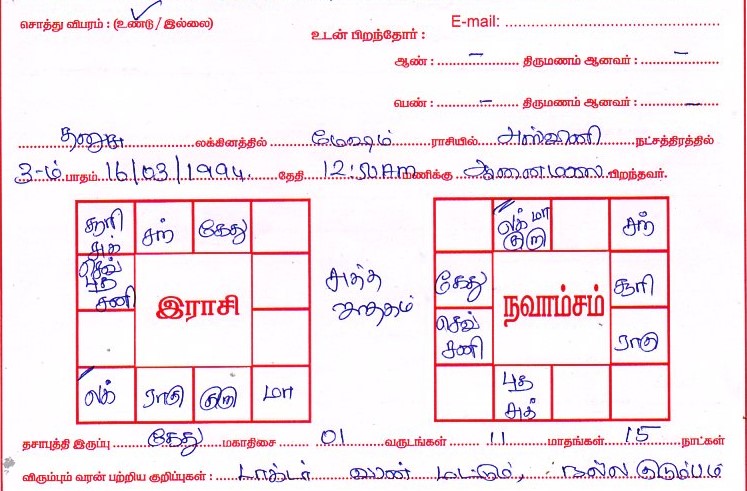 சொத்து விபரம் : (உண்டு / இல்லை)
E-mail:
உடன் பிறந்தோர் :
ஆண் : – திருமணம் ஆனவர் : –
பெண் : – திருமணம் ஆனவர் : –
தனுசு லக்கினத்தில் மேஷம் ராசியில் அஸ்வினி நட்சத்திரத்தில்
3-ம் பாதம் 16/03/1994 தேதி 12:50AM மணிக்கு ஆனைமலை பிறந்தவர்.
சூரி சுக் சந் கேது
செவ் புத சனி
இராசி
லக் ராகு குரு மா
சுத்த ஜாதகம்
லக் மா குரு சந்
கேது சூரி
நவாம்சம்
செவ் சனி ராகு
புத சுக்
தசாபுத்தி இருப்பு கேது மகாதிசை 01 வருடங்கள் 11 மாதங்கள் 15 நாட்கள்
விரும்பும் வரன் பற்றிய குறிப்புகள் : டாக்டர் பெண் மட்டும், நல்ல குடும்பம்